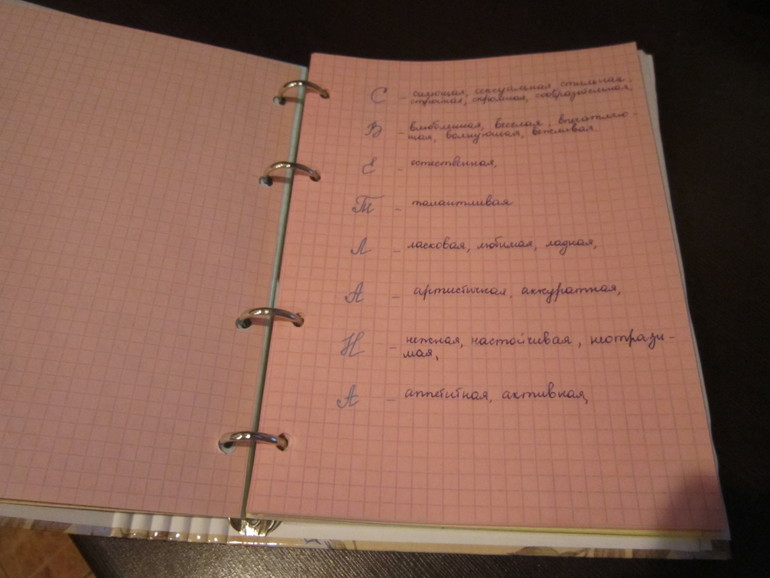 С - сияющая, сексуальная, стильная,
стройная, скромная, сообразительная,
В - влюбленная, веселая, впечатляю-
щая, волнующая, вежливая
Е - естественная,
Т - талантливая
Л - ласковая, любимая, ладная,
А - артистичная, аккуратная,
Н - нежная, настойчивая, неотрази-
мая,
А - аппетитная, активная,